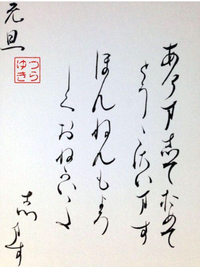 あけましておめて
とうこさいます
ほんねんもよろ
しくおねかいいた
します
元旦
つら
ゆき